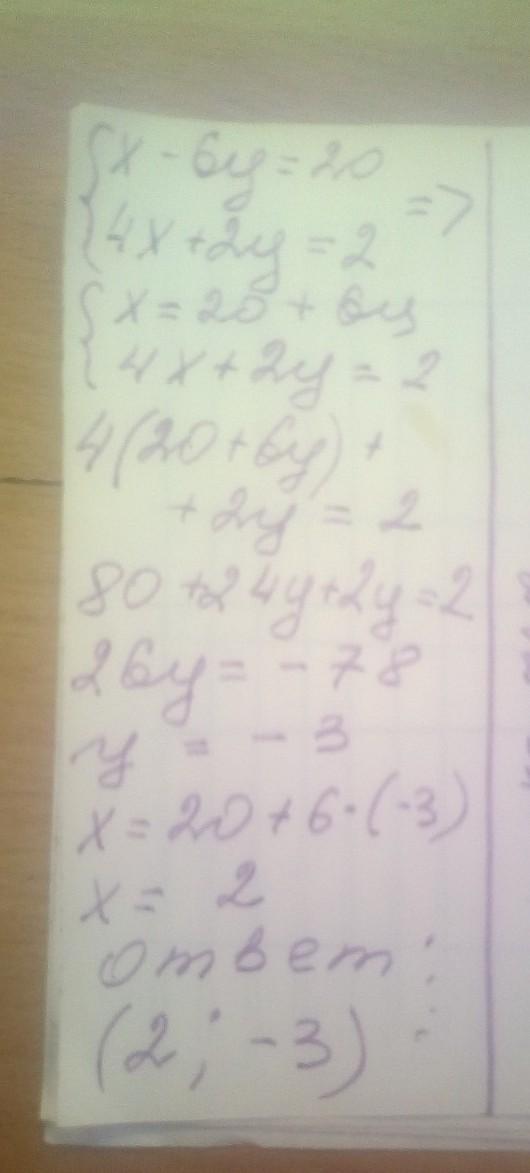 {x - 6y = 20
{4x + 2y = 2 =>
{x = 20 + 6y
{4x + 2y = 2
4(20 + 6y) +
+ 2y = 2
80 + 24y + 2y = 2
26y = - 78
y = - 3
x = 20 + 6 · (-3)
x = 2
ответ:
(2; -3)